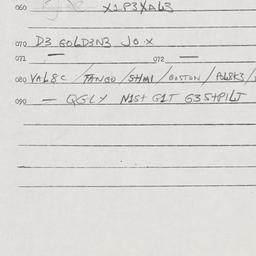 060 X1P3XAL3
070 D3 GOLD3N3 JO.X
071 — 072 —
080 VAL8C / TANGO / SHMI / BOSTON / AL8K3 /
090 — QGLY N1St G1T G3StP1LT